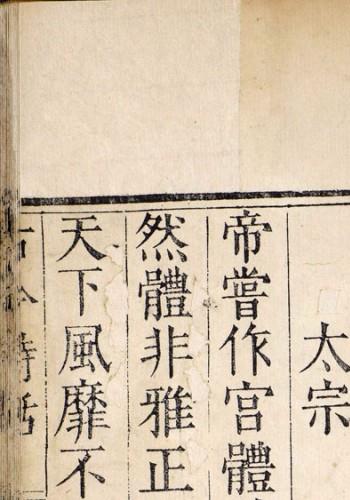 太宗
帝嘗作宮體
然體非雅正
天下風靡不
古今詩話